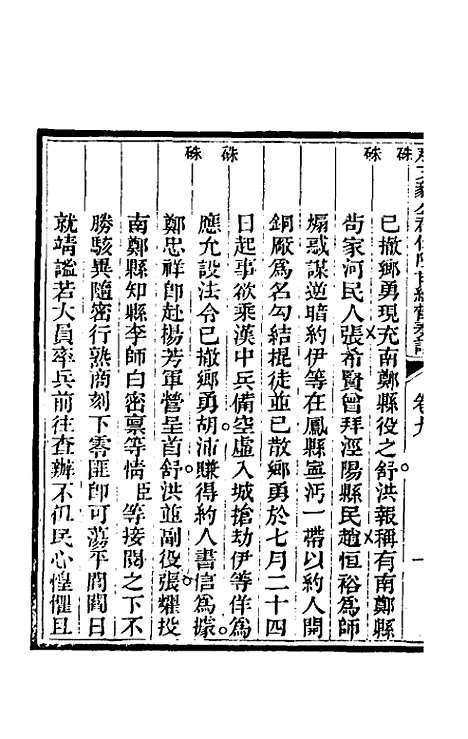 硃 硃 硃 硃
卷九
一
已撤鄉勇現充南鄭縣役之舒洪報稱有南鄭縣
茍家河民人張希賢曾拜涇陽縣民趙恒裕為師
煽惑謀逆暗約伊等在鳳縣寧沔一帶以約人開
銅厰為名勾結棍徒並已散鄉勇於七月二十四
日起事欲乘漢中兵備空虛入城搶劫伊等佯為
應允設法令已撤鄉勇胡沛賺得約人書信為據
鄭忠祥卽赴楊芳軍營呈首舒洪並副役張耀投
南鄭縣知縣李師白密禀等情臣等接閱之下不
勝駭異隨密行熟商刻下零匪卽可蕩平閭閻日
就靖謐若大員率兵前往查辦不但民心惶懼且